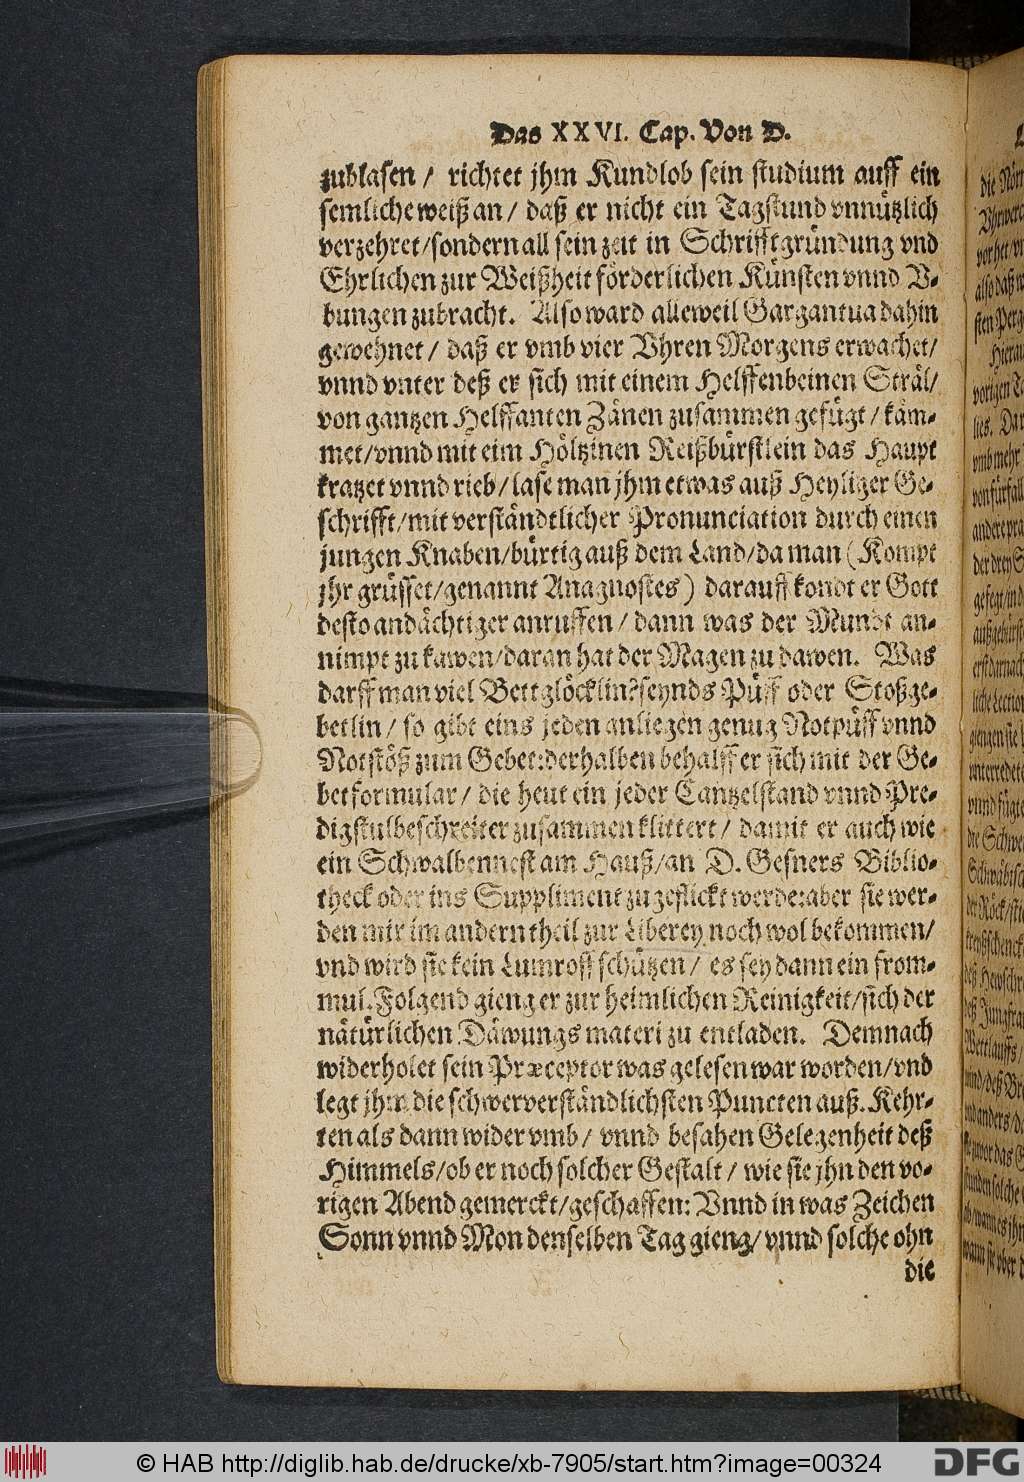 Das XXVI. Cap. Von D.
zublasen / richtet jhm Kundlob sein studium auff ein
semliche weiß an / daß er nicht ein Tagstund vnnützlich
verzehret/sondern all sein zeit in Schrifftgründung vnd
Ehrlichen zur Weißheit förderlichen Künsten vnnd V-
bungen zubracht. Also ward alleweil Gargantua dahin
gewehnet / daß er vmb vier Vhren Morgens erwachet/
vnnd vnter deß er sich mit einem Helffenbeinen Sträl/
von gantzen Helffanten Zänen zusammen gefügt / käm-
met/vnnd mit eim Höltzinen Reißbürstlein das Haupt
kratzet vnnd rieb/lase man jhm etwas auß Heyliger Ge-
schrifft/mit verständtlicher Pronunciation durch einen
jungen Knaben/bürtig auß dem Land/da man (Kompt
jhr grüsset/genannt Anagnostes) darauff kondt er Gott
desto andächtiger anruffen / dann was der Mundt an-
nimpt zu kawen/daran hat der Magen zu dawen. Was
darff man viel Bettglöcklin?seynds Püff oder Stoßge-
betlin / so gibt eins jeden anliegen genug Notpüff vnnd
Notstöß zum Gebet:derhalben behalff er sich mit der Ge-
betformular / die heut ein jeder Cantzelstand vnnd Pre-
digstulbeschreiter zusammen klittert / damit er auch wie
ein Schwalbennest am Hauß/an D. Gesners Biblio-
theck oder ins Suppliment zu geflickt werde:aber sie wer-
den mir im andern theil zur Liberey noch wol bekommen/
vnd wird sie kein Lumross schützen / es sey dann ein from-
mul. Folgend gieng er zur heimlichen Reinigkeit/sich der
nätürlichen Däwungs materi zu entladen. Demnach
widerholet sein Præceptor was gelesen war worden/vnd
legt jhm die schwerverständlichsten Puncten auß. Kehr-
ten als dann wider vmb / vnnd besahen Gelegenheit deß
Himmels/ob er noch solcher Gestalt / wie sie jhn den vo-
rigen Abend gemerckt/geschaffen: Vnnd in was Zeichen
Sonn vnnd Mon denselben Tag gieng/ vnnd solche ohn
die
© HAB http://diglib.hab.de/drucke/xb-7905/start.htm?image=00324
DFG